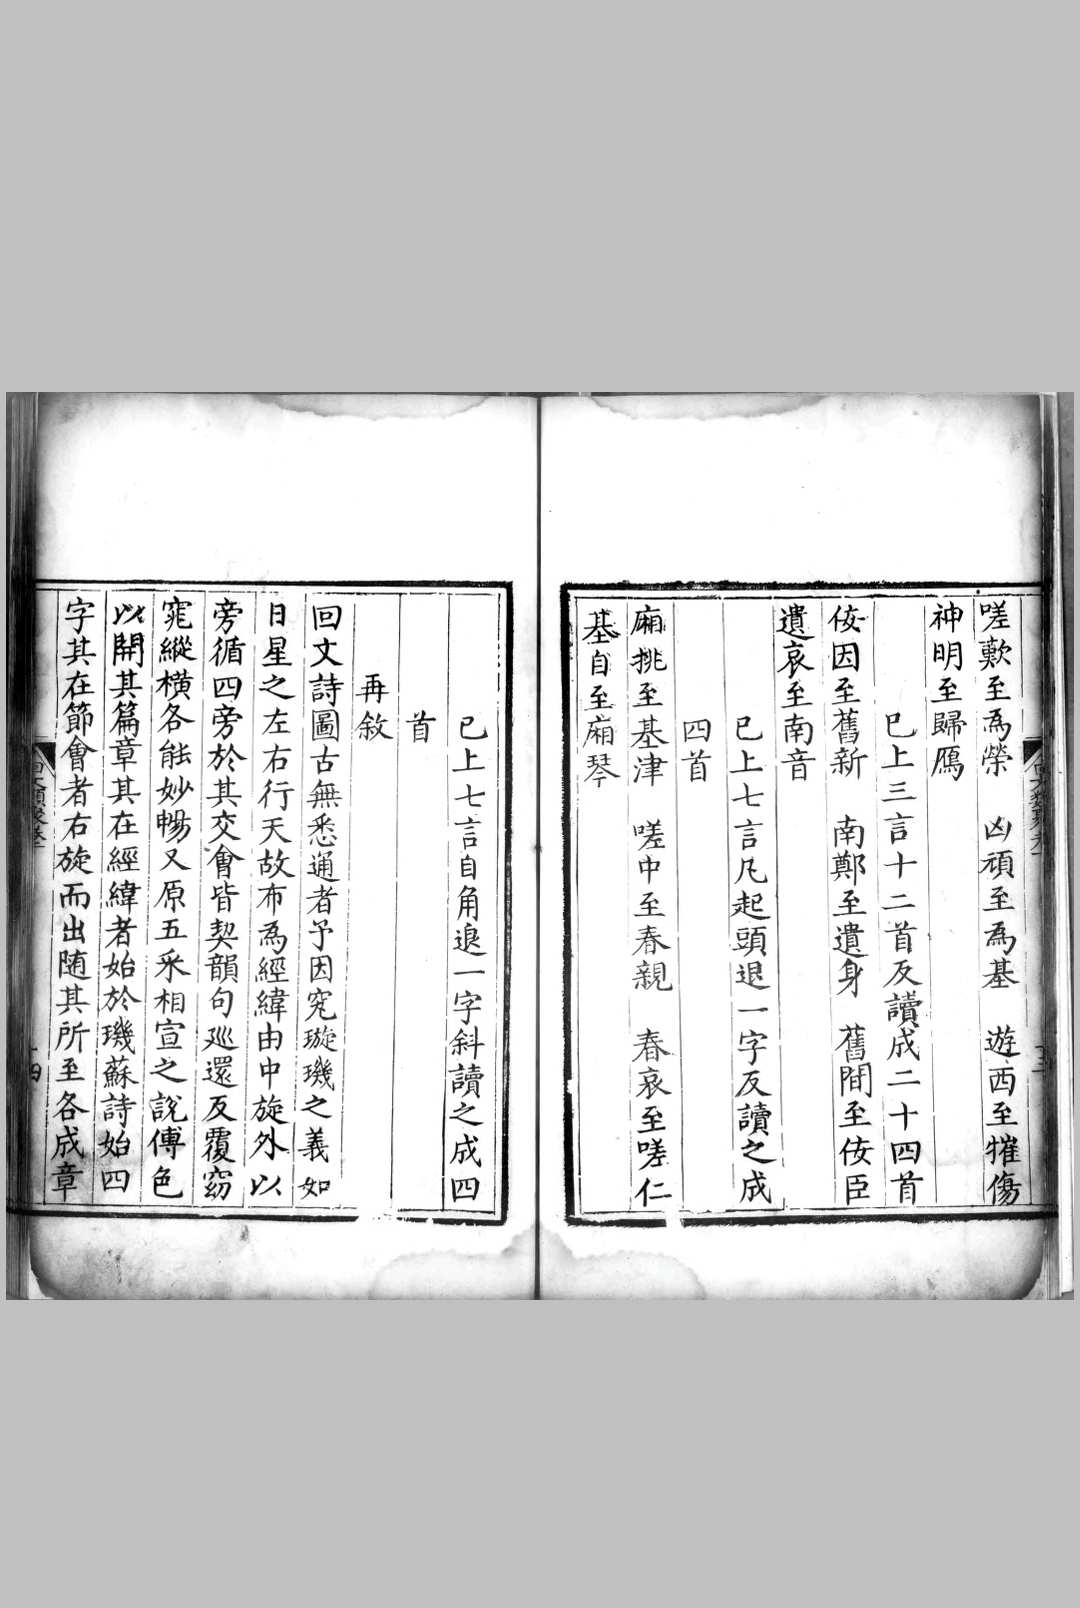 嗟歎至為榮　凶頑至為基　遊西至摧傷
神明至歸鴈
已上三言十二首反讀成二十四首
佞因至舊新　南鄭至遺身　舊間至佞臣
遺哀至南音
已上七言凡起頭退一字反讀之成
四首
廂桃至基津　嗟中至春親　春哀至嗟仁
基自至廂琴
已上七言自角退一字斜讀之成四
首
再敘
回文詩圖古無悉通者予因究璇璣之義如
日星之左右行天故布為經緯由中旋外以
旁循四旁於其交會皆契韻句巡還反覆窈
窕縱橫各能妙暢又原五采相宣之說傅色
以開其篇章其在經緯者始於璣蘇詩始四
字其在節會者右旋而出随其所至各成章